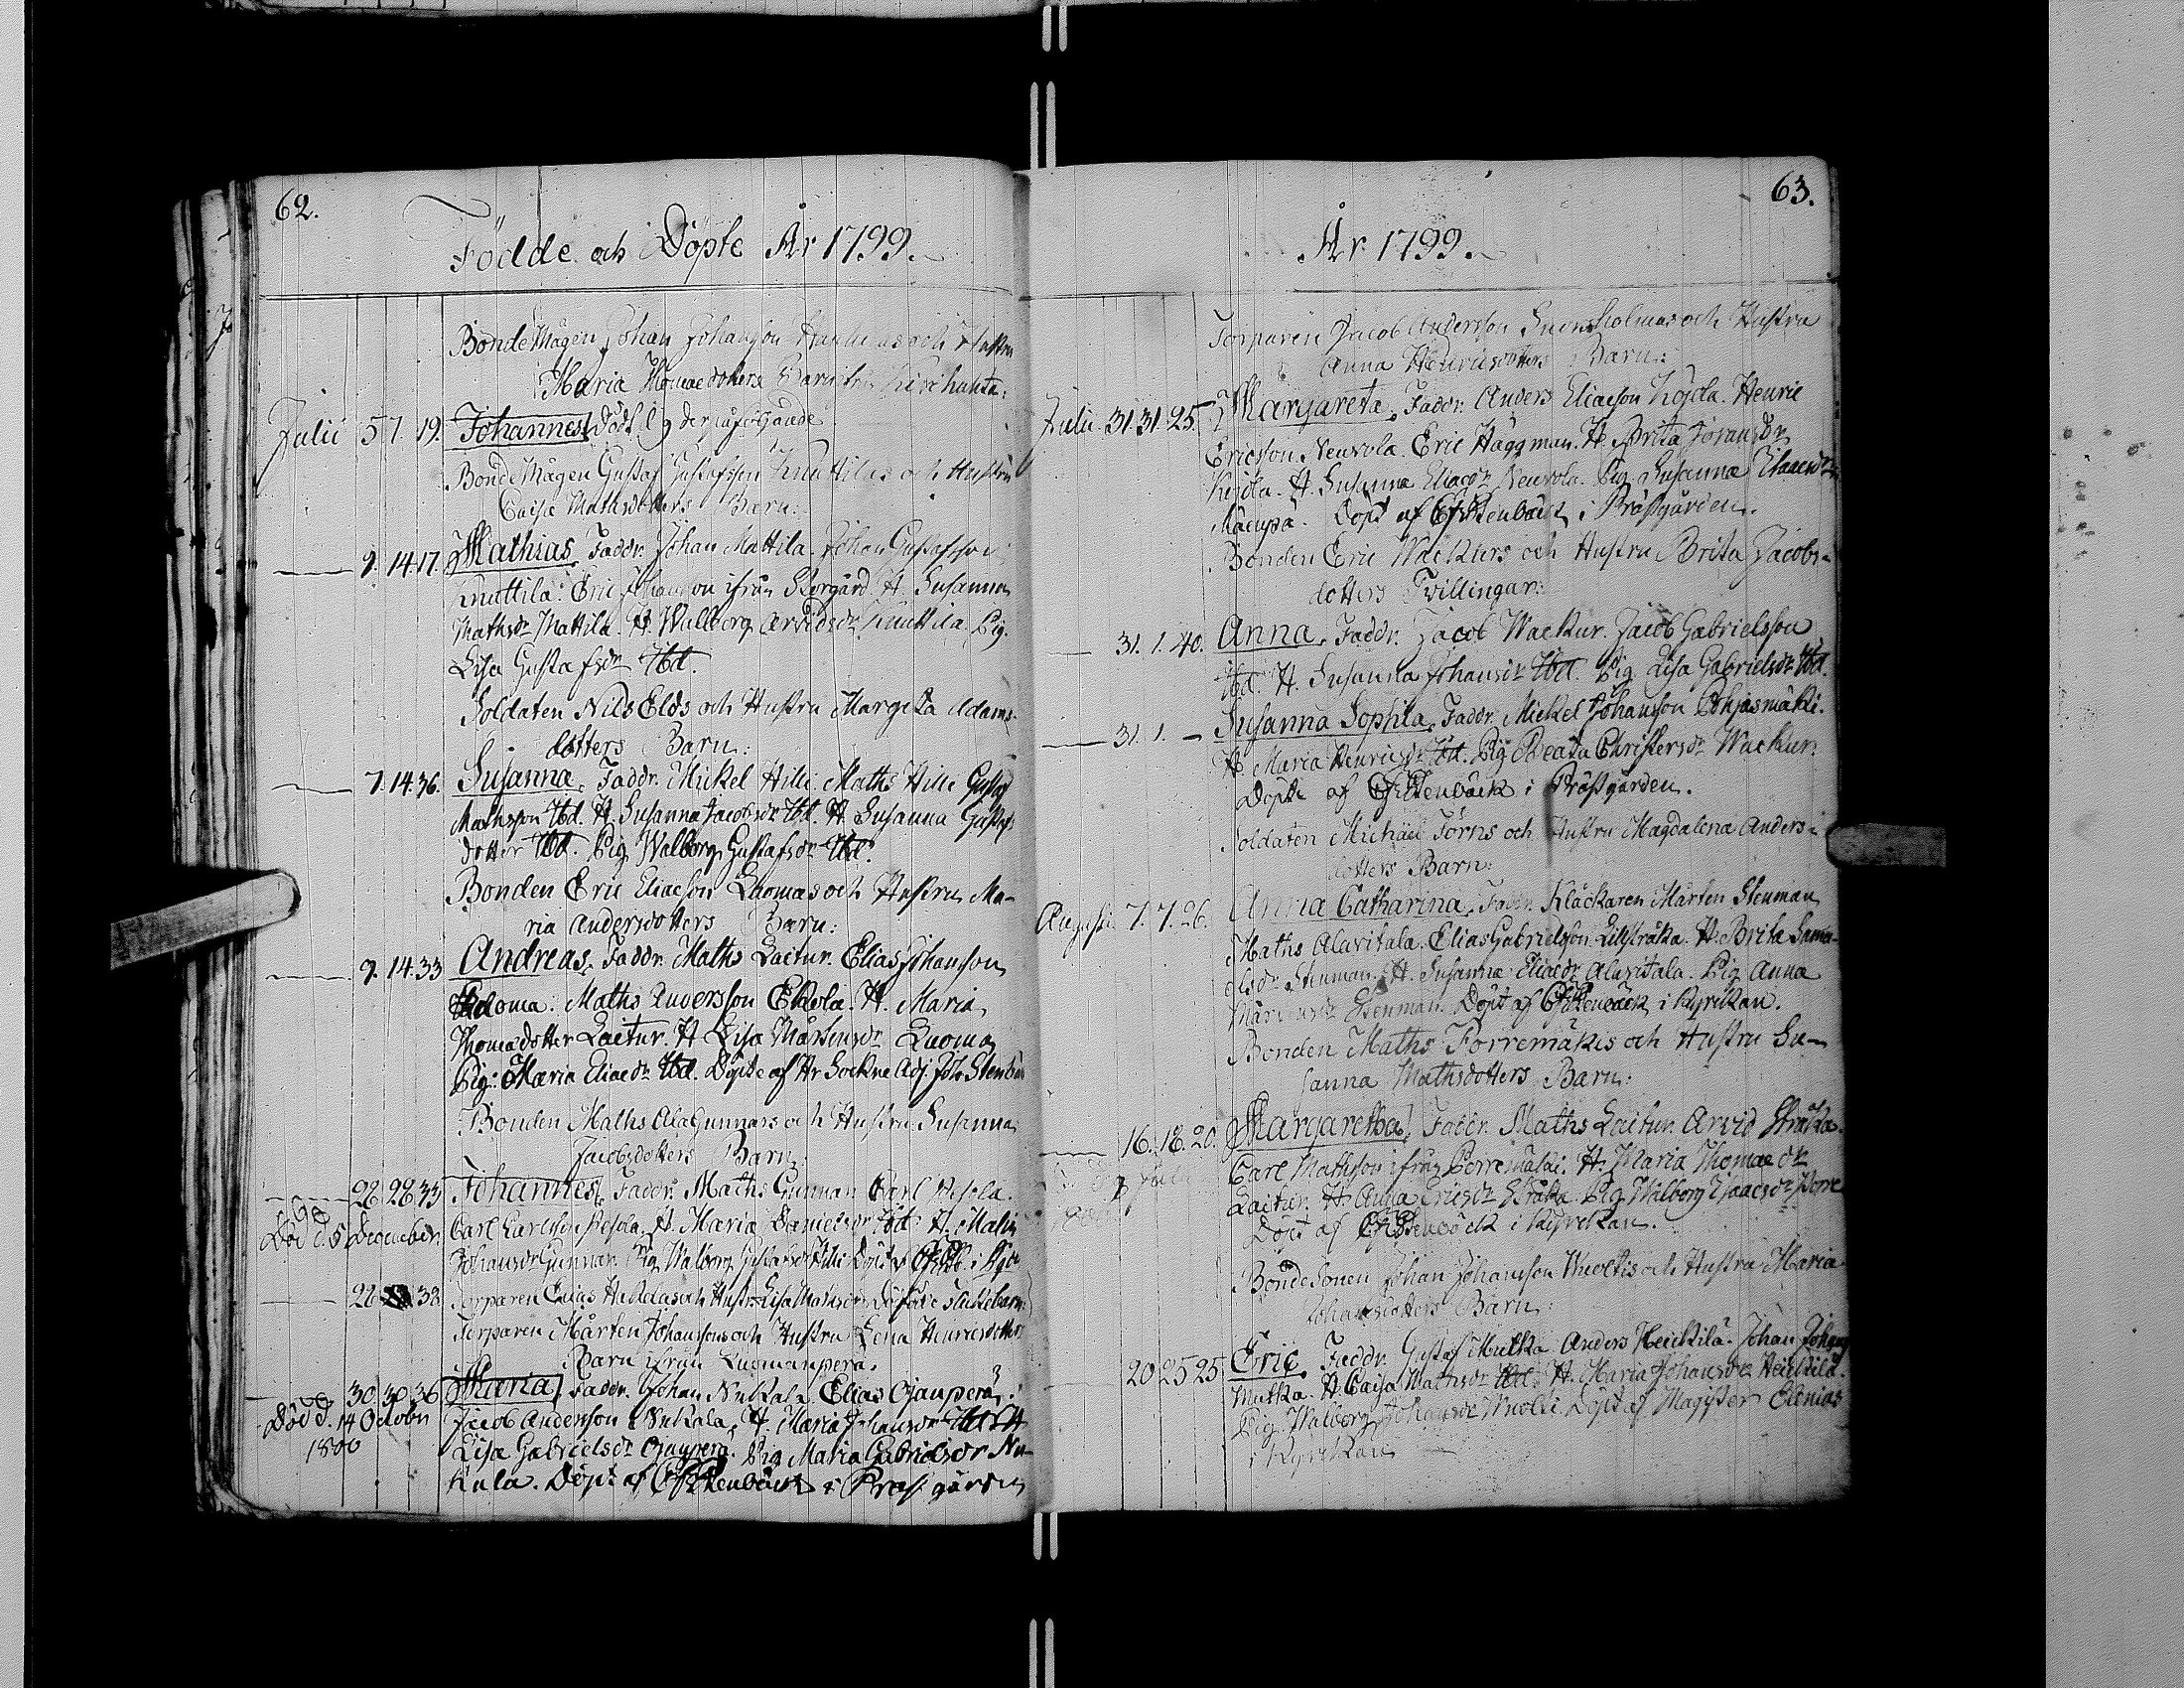 62.
Födde och Döpte År 1799.
BondeMågen Johan Johanson och Hustru
Maria Thomaedotters Barn
Julii 5. 7. 19. Johannes, Död d. 9 derpåfölgande
BondeMågen Gustaf Gustafsson Knuttilas och Hustru
Caisa Mathsdotters Barn:
9. 14. 17. Mathias. Faddr. Johan Mattila. Johan Gustafsson
Knuttila: Eric Johanson ifrån Storgård. H. Susanna
Mathsdr Mattila. H. Wallborg Arvidsdr Knuttila. Pig.
Lisa Gustafsdr Ibd.
Soldaten Nils Elds och Hustru Margeta Adams-
dotters Barn:
7. 14. 36. Susanna. Faddr. Mickel Hilli. Maths Hilli Gustaf
Mathsson Ibd. H. Susanna Jacobsdr Ibd. H. Susanna Gustafs
dotter Ibd. Pig. Walborg Gustafsdr Ibd.
Bonden Eric Eliaeson Luomas och Hustru Ma-
ria Andersdotters Barn:
9. 14. 33 Andreas. Faddr. Maths Laitur. Elias Johansson
Luoma: Maths Andersson Eskola. H. Maria
Thomadotter Laitur. H Lisa Mårtensdr Luoma
Pig: Maria Eliaedr Ibd. Döpte af Hr Sockne Adj. Joh Stenbä
Bonden Maths AlaGunnars och Hustru Susanna
Jacobsdotters Barn:
28 28 33 Johannes. Faddr. Maths Gunnar Carl Pesola.
Död d. 5 December Carl Carlsson Pesola. H. Maria Danielsdr Ibd. H. Malin
Johansdr Gunnar. Pig Walborg Gustafsdr Hilli Döpt af
28 38 Torparen Elias Hakolas och Hustr Lisa Mathsdr Dödfödde flickebarn:
Torparen Mårten Johanssons och Hustru Lena Henricsdotters
Barn ifrån Luomanperä.
30. 30. 36 Maria, Faddr. Johan Nukala Elias Ojanperä.
Död d. 14 Octobr Jacob Andersson Nukala, H. Maria Johansdr Ibd H
1800 Lisa Gabrielsdr Ojanperä. Pig Maria Gabrielsdr Nu-
kula. Döpt af Stenbäck i Prästgården
63.
År 1799.
Torparen Jacob Andersson och Hustru
Anna Henricsdotters Barn:
Julii. 31. 31. 25. Margareta. Faddr. Anders Eliaeson Kojola. Henric
Ericsson Neuvola. Eric Häggman. H. Brita Joransdr
Kojola. H. Susanna Eliaedr Neuvola. Pig Susanna Isaacsdr
Mäenpä. Döpt af Stenbäck i Prästgården.
Bonden Eric Wackurs och Hustru Brita Jacobs-
dotters Tvillingar:
31. 1. 40. Anna. Faddr. Jacob Wackur. Jacob Gabrielsson
Ibd. H. Susanna Johansdr Ibd. Pig Lisa Gabrielsdr Ibd.
31. 1. - Susanna Sophia. Faddr. Mickel Johansson Pohjasmäki.
H Maria Henricsdr Ibd. Pig Beata Christersdr Wackur.
Döpte af Stenbäck i Prästgården.
Soldaten Michael Törns och Hustru Magdalena Anders-
dotters Barn:
Augusti. 7. 7. 26. Anna Catharina. Faddr. Klåckaren Mårten Stenman
Maths Alavitala. Elias Gabrielsson Lillstråka. H. Brita Samu-
elsdr Stenman. H. Susanna Eliaedr Alavitala. Pig Anna
Mårtensdr Stenman. Döpt af Stenbäck i Kyrckan.
Bonden Maths Porremäkis och Hustru Su-
sanna Mathsdotters Barn:
16. 18. 20. Margaretha. Faddr. Maths Laitur. Arvid Stråka.
Carl Mathsson ifrån Porremäki. H. Maria Thomaedr
Laitur. H. Anna Ericsdr Stråka. Pig Walborg Isaacsdr Porre
Döpt af Stenbäck i Kyrckan.
BondeSonen Johan Johansson Wuoltis och Hustru Maria
Johansdotters Barn:
20 25 25 Eric. Faddr. Gustaf Mutka. Anders Heickilä. Johan Johans
Mutka. H. Caisa Mathsdr Ibd. H. Maria Johansdr Heickilä.
Pig Walborg Johansdr Wuolti. Döpt af Magister Elenius
i Kyrckan